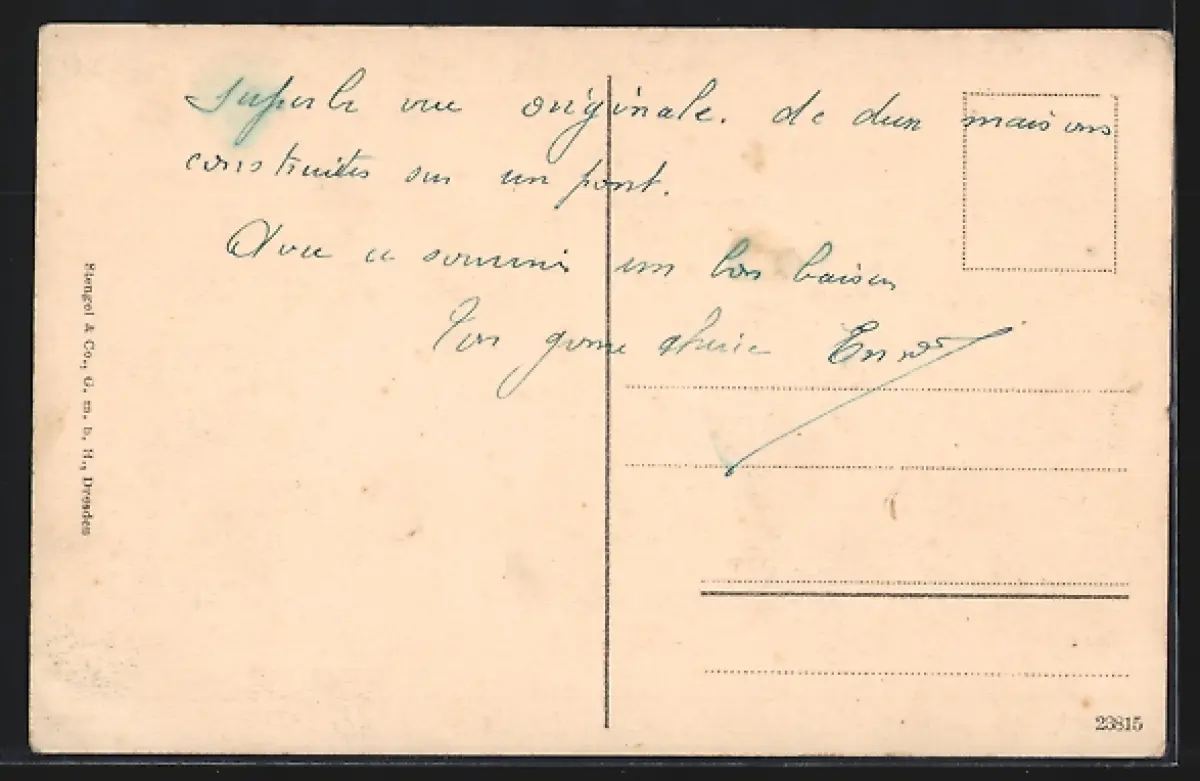 Superbe vue originale. de deux maisons
construites sur un pont.
Avec ce souvenir un bon baiser
Ton gosse chérie
Stengel & Co., G. m. b. H., Dresden
23815